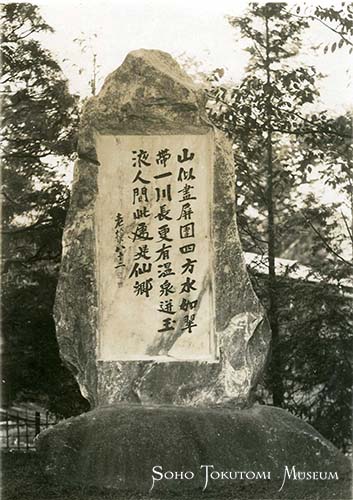 山似畫屏圍四方水如翠
帶一川長更有温泉迸玉
液人間此處是仙鄉
老蘇八十三
SOHO TOKUTOMI MUSEUM